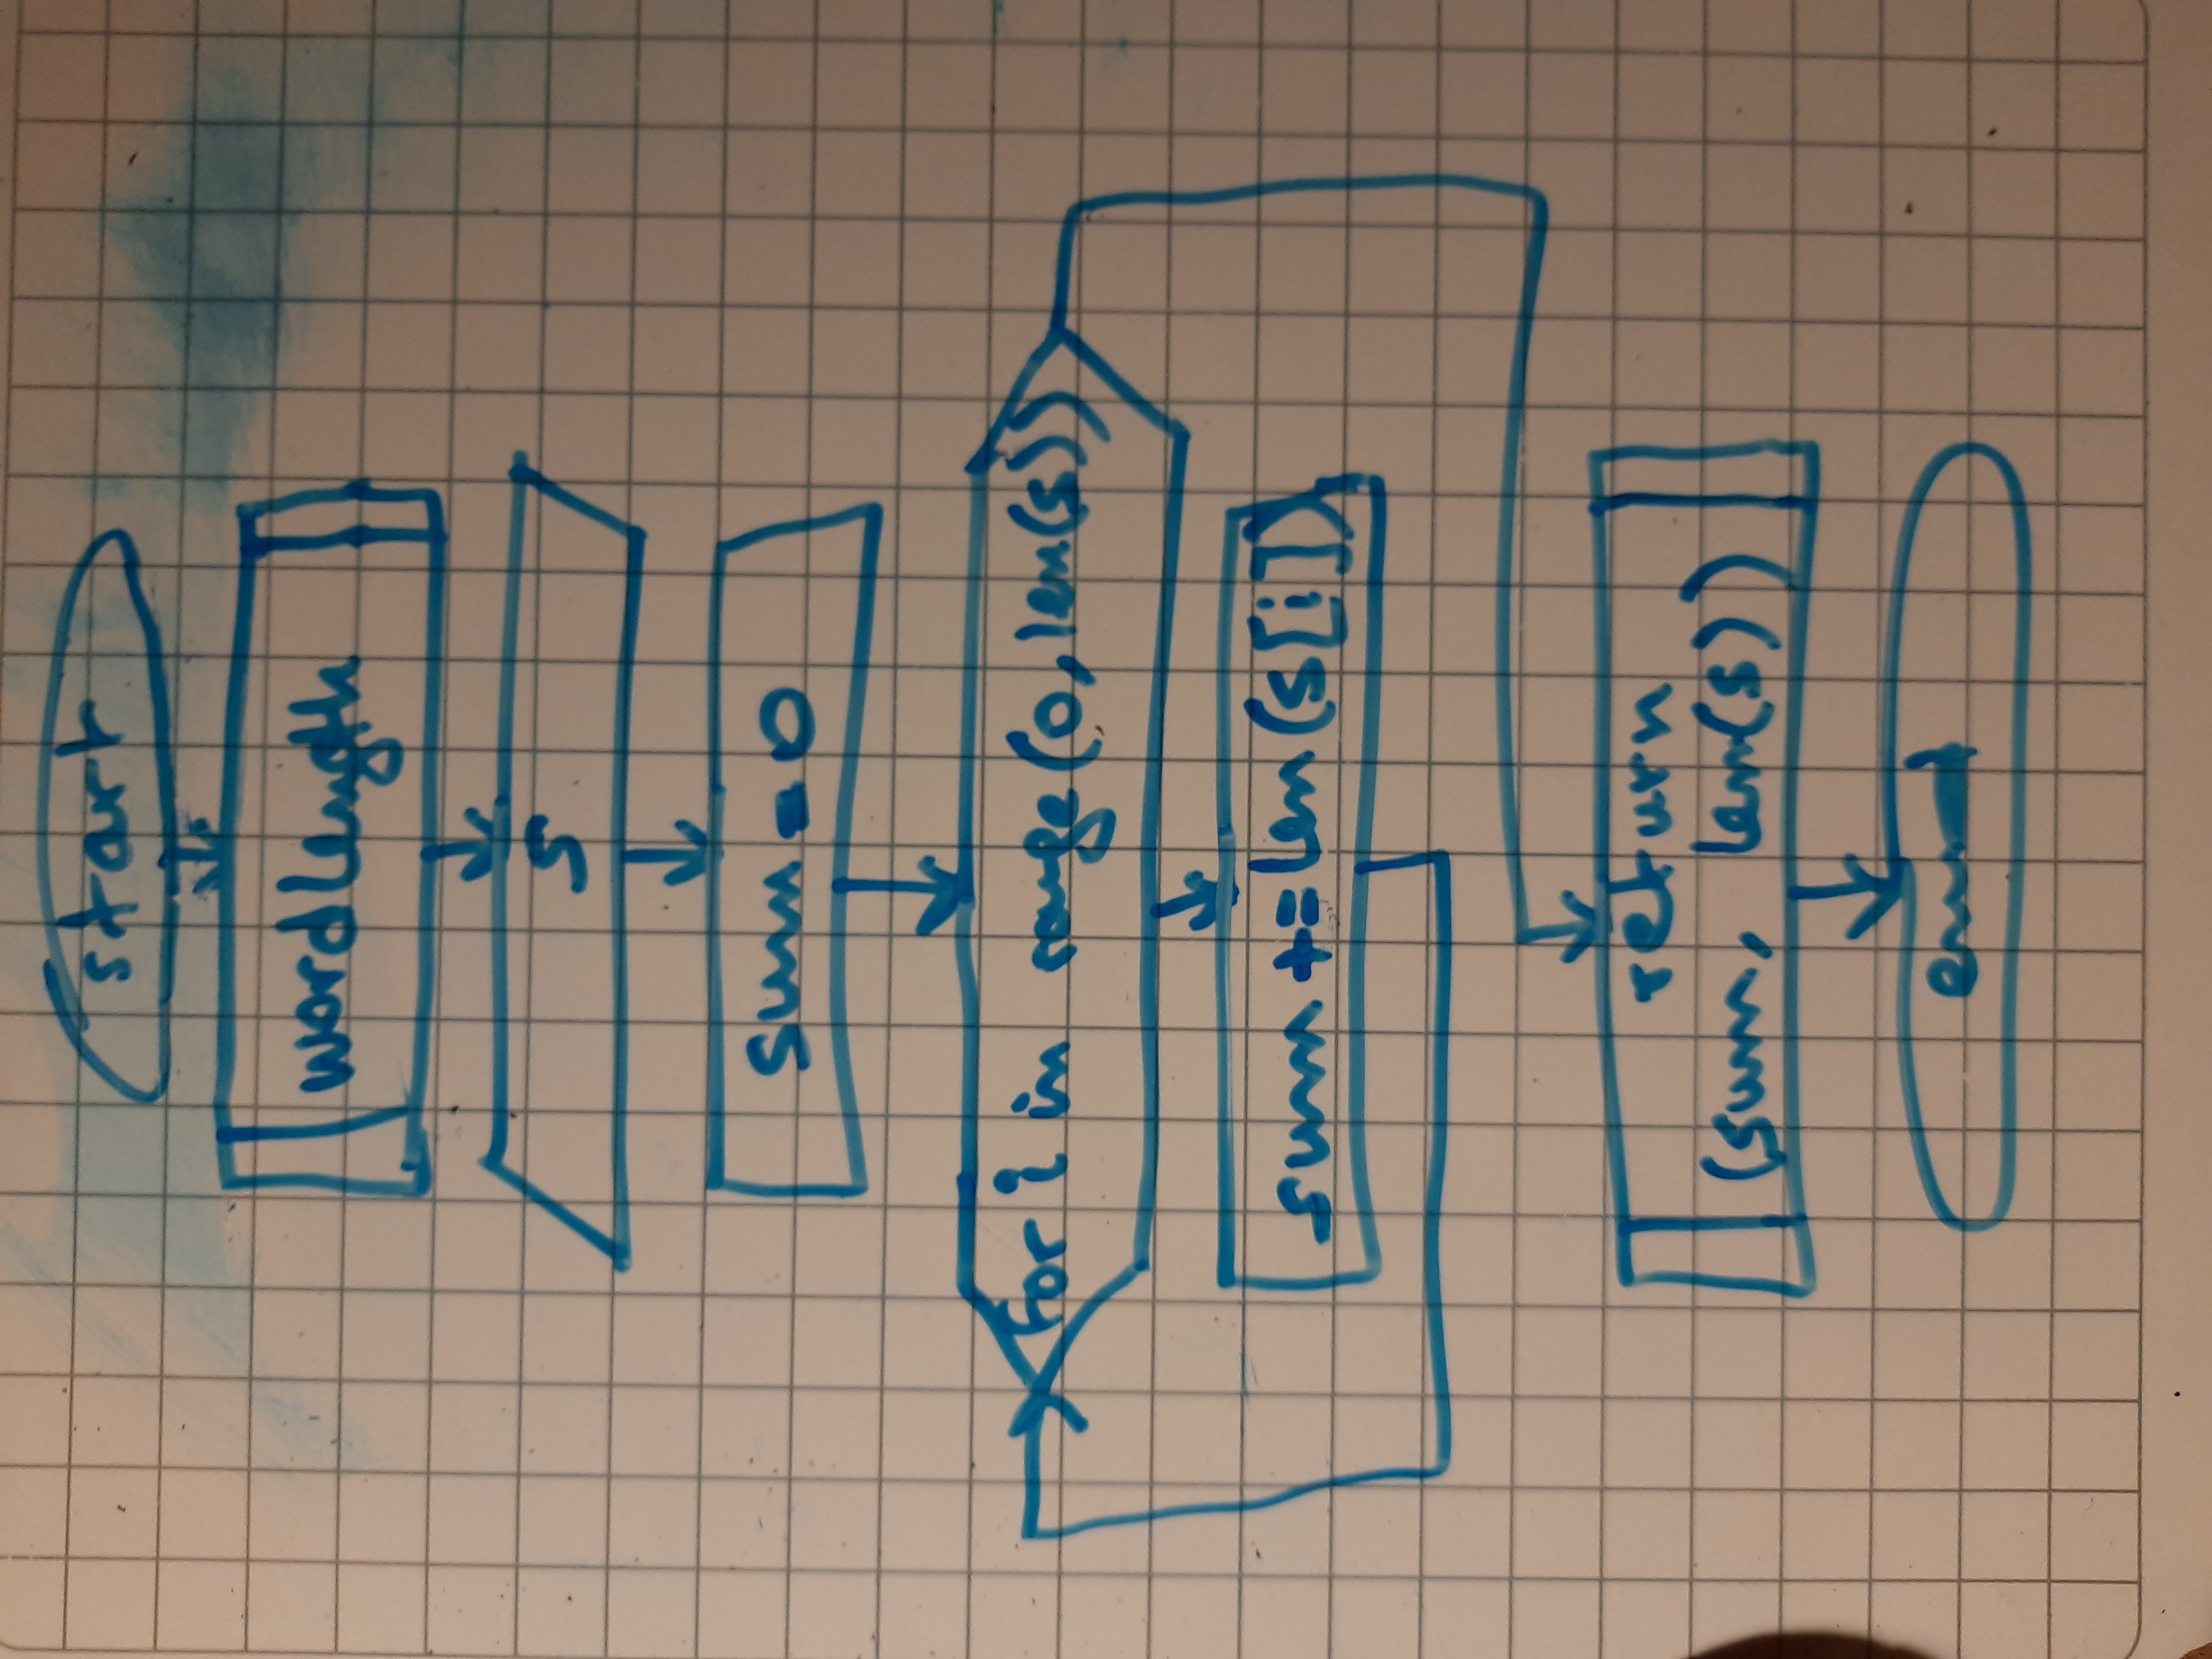 start
wordlength
s
sum = 0
for i in range(0, len(s))
sum += len(s[i])
return
(sum, len(s))
end